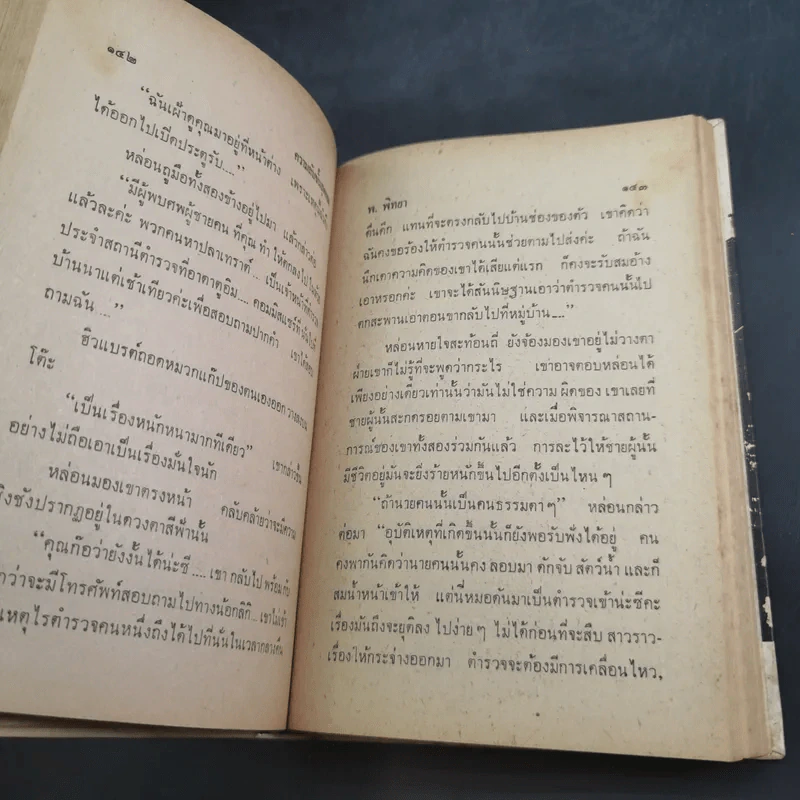 ๑๔๒
“ฉันเฝ้าดูคุณมาอยู่ที่หน้าต่าง
ได้ออกไปเปิดประตูรับ....”
หล่อนถูมือทั้งสองข้างอยู่ไปมา แล้วกล่าวต่อ
“มีผู้พบศพผู้ชายคน ที่คุณ ทำ ให้ตกลง
แล้วละค่ะ พวกคนหาปลาเทราต์... เป็นเจ้าหน้าที่ตำรวจ
ประจำสถานีตำรวจที่อาตาดูอิม....
บ้านนาแต่เช้าเทียวค่ะเพื่อสอบถามปากคำ
ถามฉัน ....”
ฮิวแบรต์ถอดหมวกแก๊ปของตนเองออก
โต๊ะ
“เป็นเรื่องหนักหนามากทีเดียว” เขากล่าวขึ้น
อย่างไม่ถือเอาเป็นเรื่องมั่นใจนัก
หล่อนมองเขาตรงหน้า คลับคล้ายว่าจะมีความ
ชิงชังปรากฏอยู่ในดวงตาสีฟ้านั้น
“คุณก็อว่ายังงั้นได้น่ะซี .... เขา กลับไป พร้อม กับ
กว่าจะมีโทรศัพท์สอบถามไปทาง
เหตุไรตำรวจคนหนึ่งถึงได้ไปที่นั่นในเวลากลางคืน
พ. พิทยา
๑๔๓
ดึ่นดึก แทนที่จะตรงกลับไปบ้านช่องของตัว เขาคิดว่า
ฉันคงขอร้องให้ตำรวจคนนั้นช่วยตามไปส่งค่ะ ถ้าฉัน
นึกเดาความคิดของเขาได้เสียแต่แรก ก็คงจะรับสมอ้าง
เอาหรอกค่ะ เขาจะได้สันนิษฐานเอาว่าตำรวจคนนั้นไป
ตกสะพานเอาตอนขากลับไปที่หมู่บ้าน....”
หล่อนหายใจสะท้อนถี่ ยังจ้องมองเขาอยู่ไม่วางตา
ฝ่ายเขาก็ไม่รู้ที่จะพูดว่ากระไร เขาอาจตอบหล่อนได้
เพียงอย่างเดียวเท่านั้นว่ามันไม่ใช่ความ ผิดของ เขาเลยที่
ชายผู้นั้นสะกดรอยตามเขามา และเมื่อพิจารณาสถาน-
การณ์ของเขาทั้งสองร่วมกันแล้ว การละไว้ให้ชายผู้นั้น
มีชีวิตอยู่มันจะยิ่งร้ายหนักขึ้นไปอีกตั้งเป็นไหน ๆ
“ถ้านายคนนั้นเป็นคนธรรมดา ๆ” หล่อนกล่าว
ต่อมา “อุบัติเหตุที่เกิดขึ้นนั้นก็ยังพอรับฟังได้อยู่ คน
คงพากันคิดว่านายคนนั้นคง ลอบมา ดักจับ สัตว์น้ำ และก็
สมน้ำหน้าเข้าให้ แต่นี่หมอดันมาเป็นตำรวจเข้าน่ะซีคะ
เรื่องมันถึงจะยุติลง ไปง่าย ๆ ไม่ได้ก่อนที่จะสืบ สาวราว-
เรื่องให้กระจ่างออกมา ตำรวจจะต้องมีการเคลื่อนไหว,